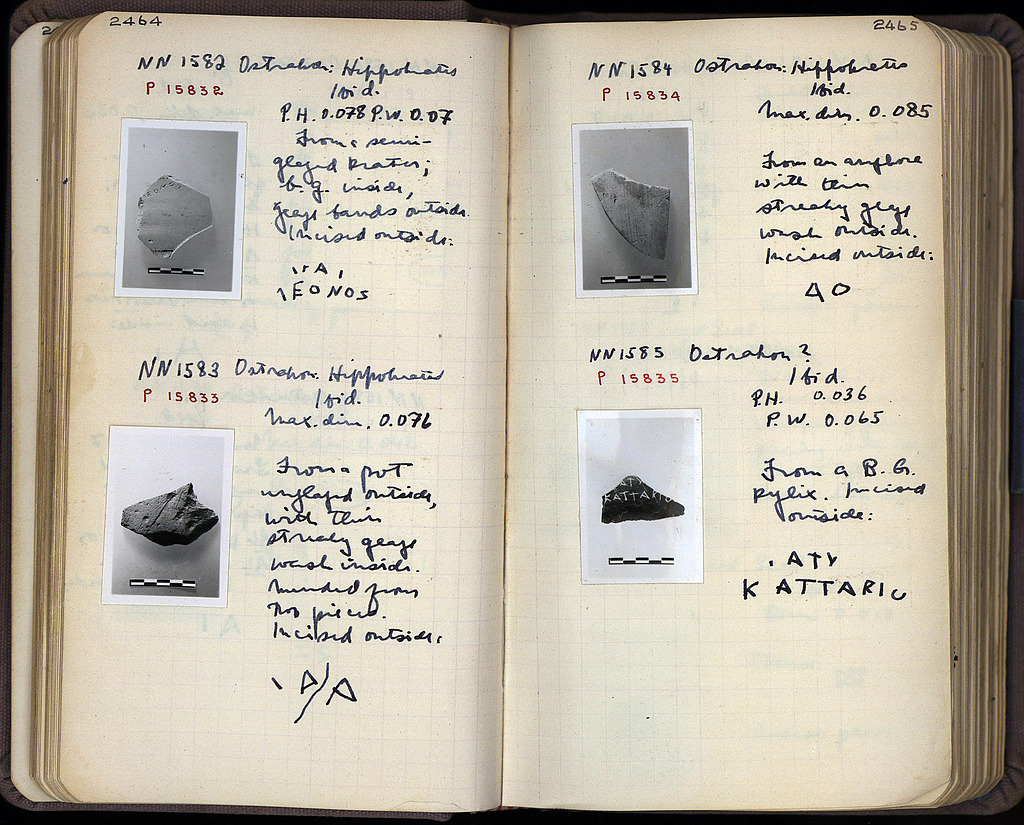 2464
NN 1582 Ostrakon: Hippokrates
P 15832
Ibid.
P.H. 0.078 P.W. 0.07
From a semi-
glazed krater;
b.g. inside,
glaze bands outside.
Incised outside:
ΕΟΝΟS
NN 1583 Ostrakon: Hippokrates
P 15833
Ibid.
Max. dim. 0.076
From a pot
unglazed outside,
with thin
streaky glaze
wash inside.
Mended from
two pieces.
Incised outside:
A/A
2465
NN 1584 Ostrakon: Hippokrates
P 15834
Ibid.
Max. dim. 0.085
From an amphora
with thin
streaky glaze
wash outside.
Incised outside:
ΔΟ
NN 1585 Ostrakon?
P 15835
Ibid.
P.H. 0.036
P.W. 0.065
ATY
KATTARIU
From a B.G.
pyxis. Incised
outside:
. ATY
KATTARIU